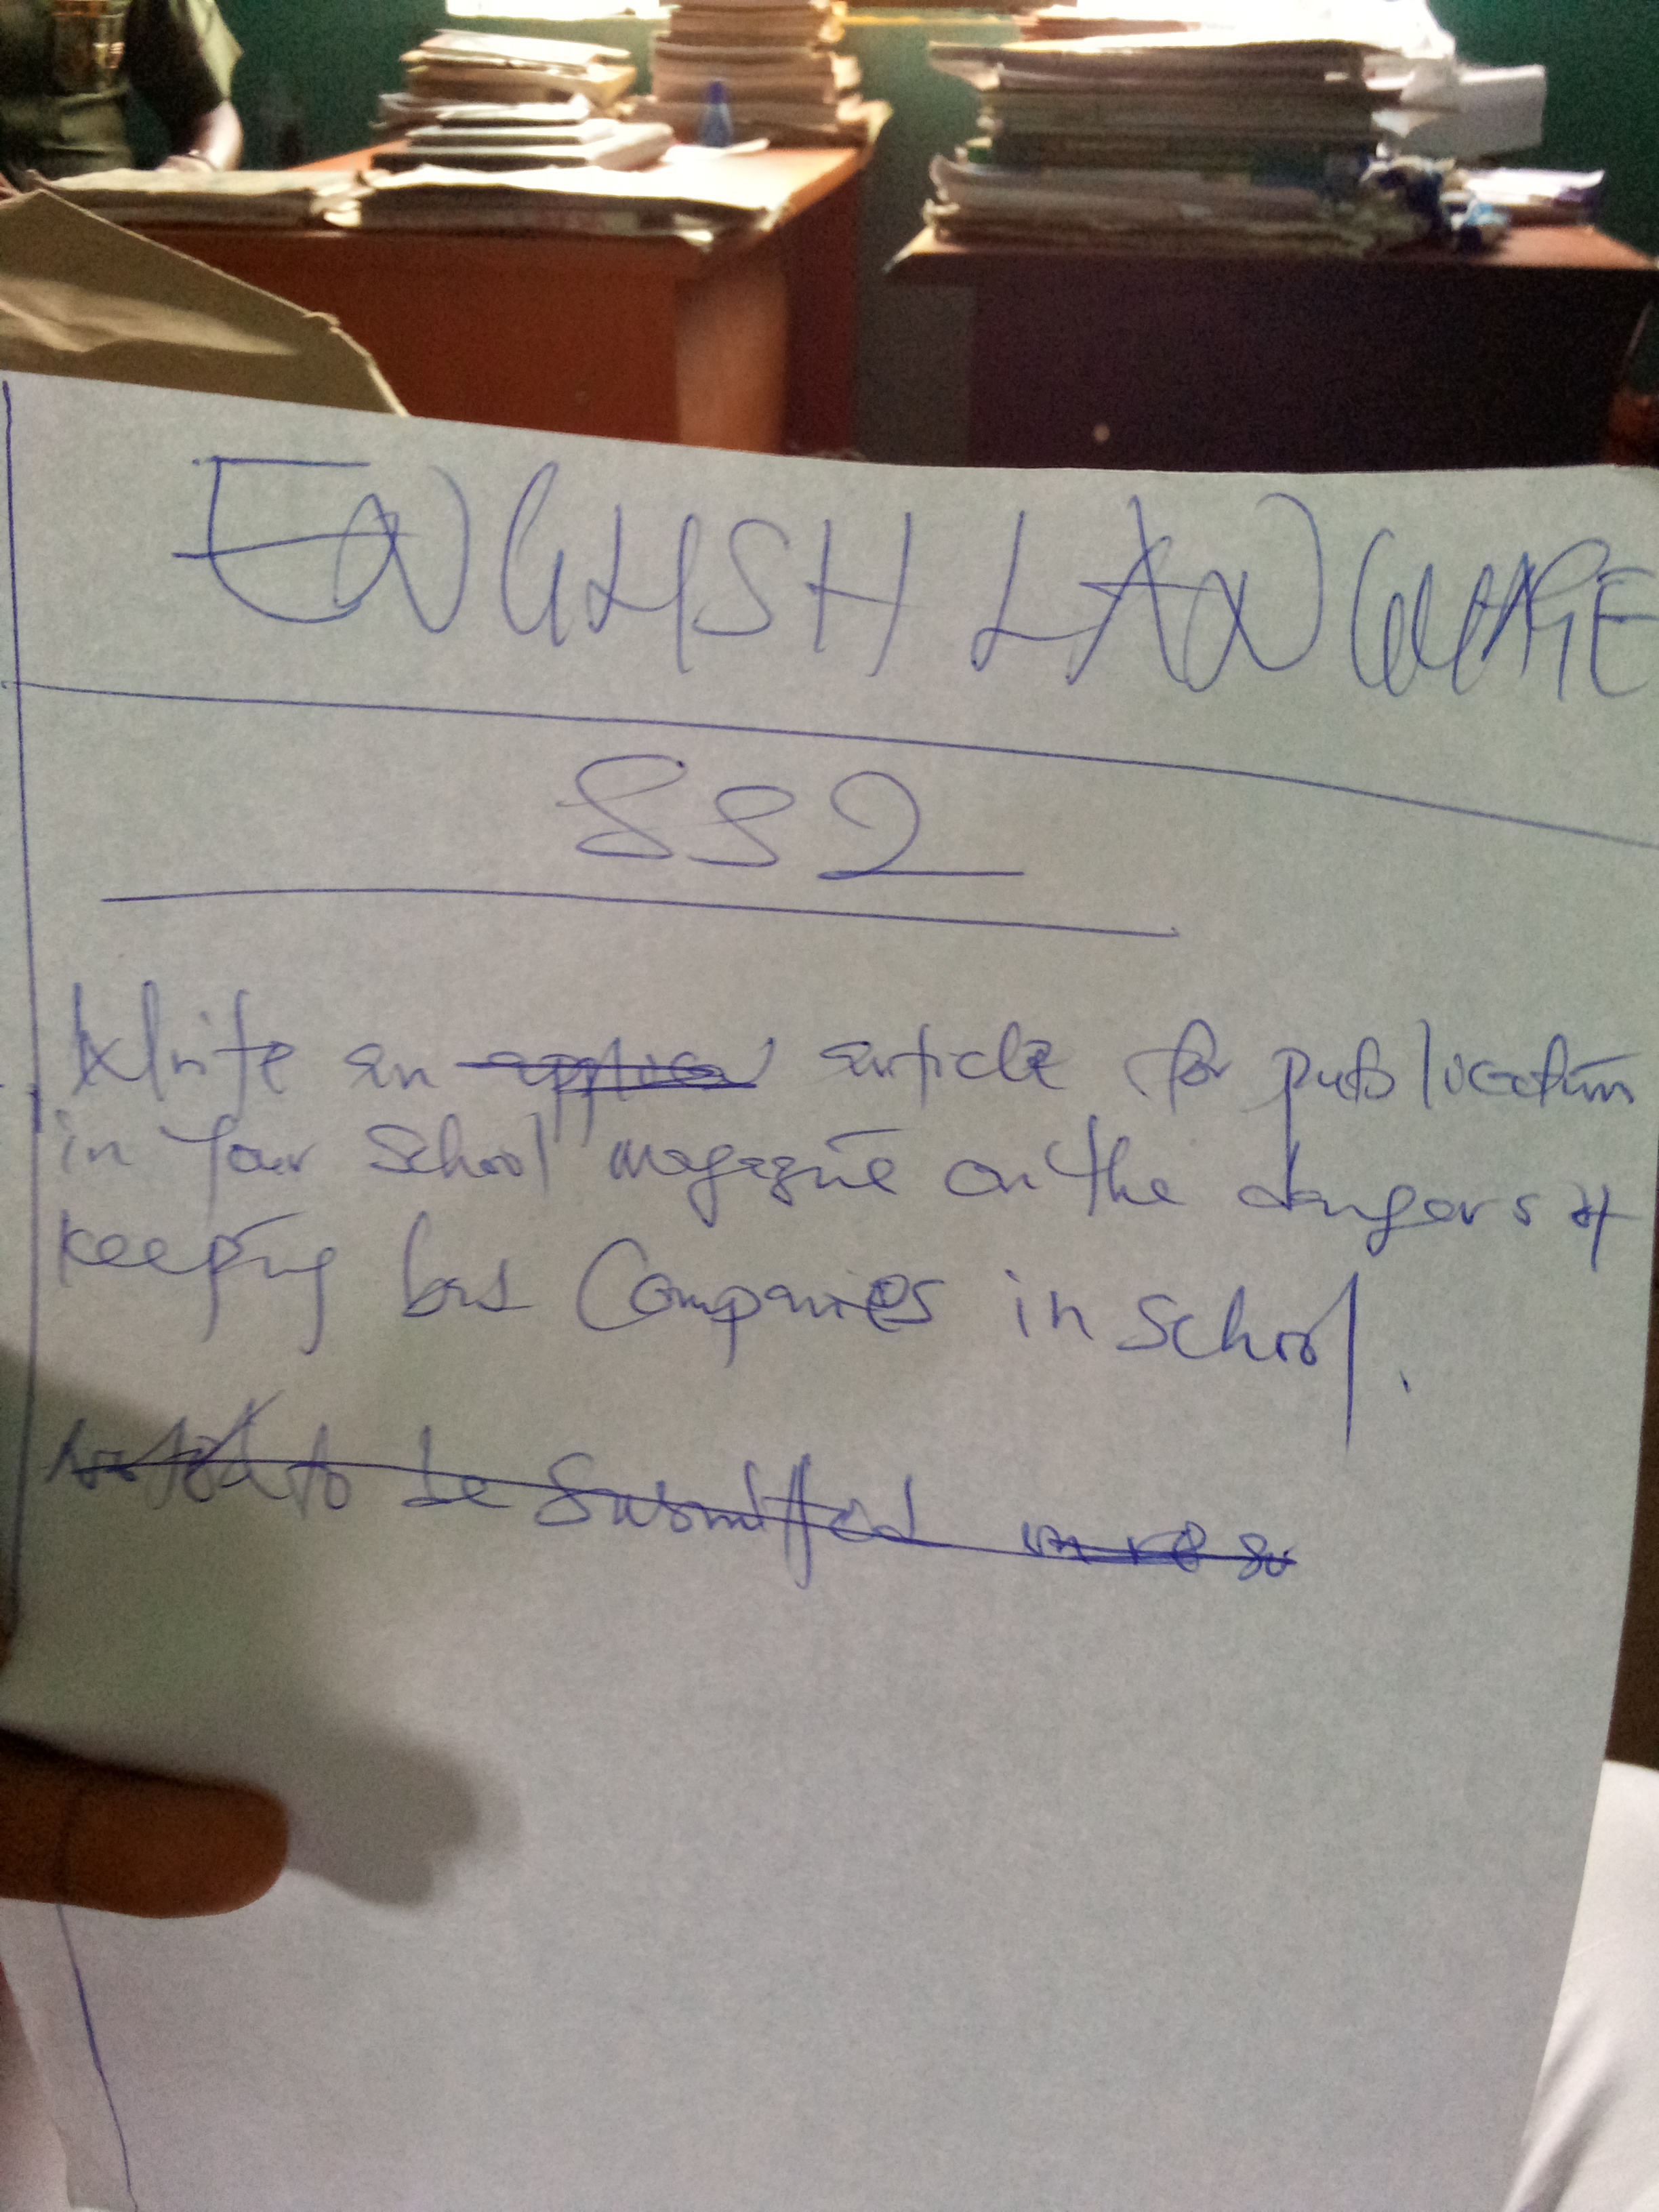 ENGLISH LANGUAGE
SS2
Write an article for publication
in your school magazine on the dangers of
keeping bad Companies in school.
to be Submitted